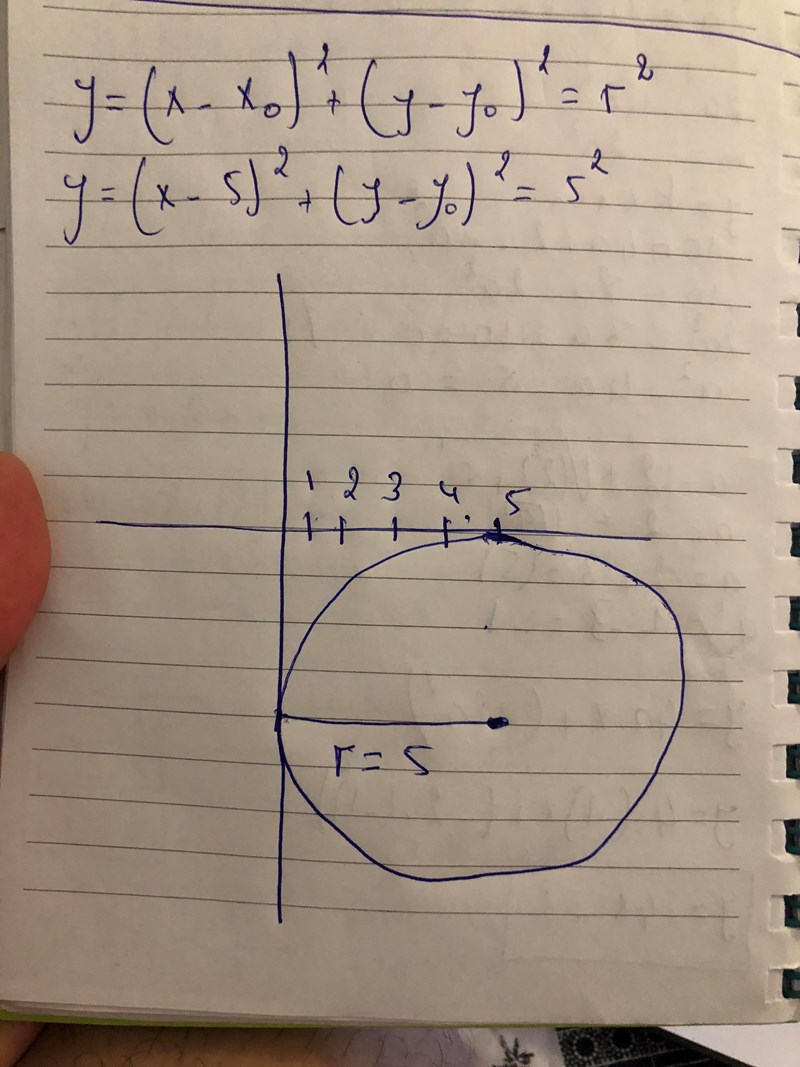 y = (x - x₀)² + (y - y₀)² = r²
y = (x - 5)² + (y - y₀)² = 5²
1 2 3 4 5
r = 5